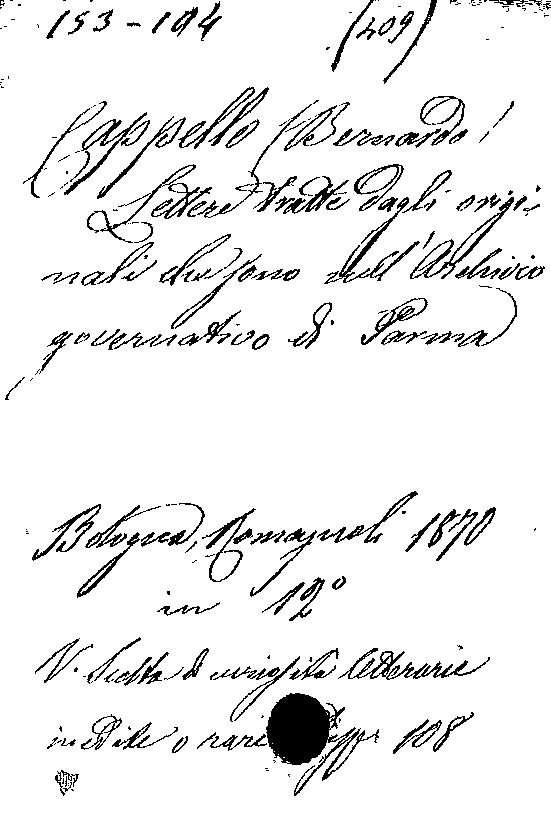 153-194 (409)
Cappello (Bernardo)
Lettere tratte dagli origi-
nali che sono nell'Archivio
governativo di Parma
Bologna, Romagnoli 1870
in 12°
V. Scelta di curiosità letterarie
inedite o rare 108